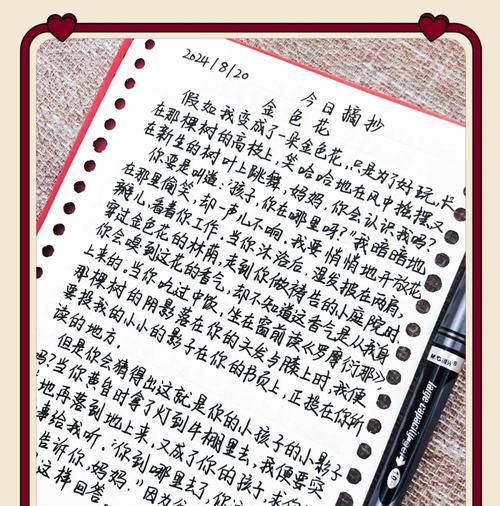 2024/8/20
今日摘抄
金色花
假如我变成了一朵金色花,只是为了好玩,长
在那棵树的高枝上,笑哈哈地在风中摇摆,又
在新生的树叶上跳舞,妈妈,你会认识我吗?
你要是叫道:"孩子,你在哪里呀?"我暗暗地
在那里偷笑,却一声儿不响。我要悄悄地开放花
瓣儿,看着你工作。当你沐浴后,湿发披在两肩,
穿过金色花的林荫,走到你做祷告的小庭院时
你会嗅到这花的香气,却不知道这香气是从我身
上来的。当你吃过中饭,坐在窗前读《罗摩衍那》
那棵树的阴影落在你的头发与膝上时,我便
要投我的小小的影子在你的书页上,正投在你所
读的地方。
但是你会猜得出这就是你的小孩子的小影子
吗?当你黄昏时拿了灯到牛棚里去,我便要突
地再落到地上来,又成了你的孩子,求你
事给我听。"你到哪里去了,你
告诉你,妈妈。"因为
这样回答
M&G 晨光
large capacity gel